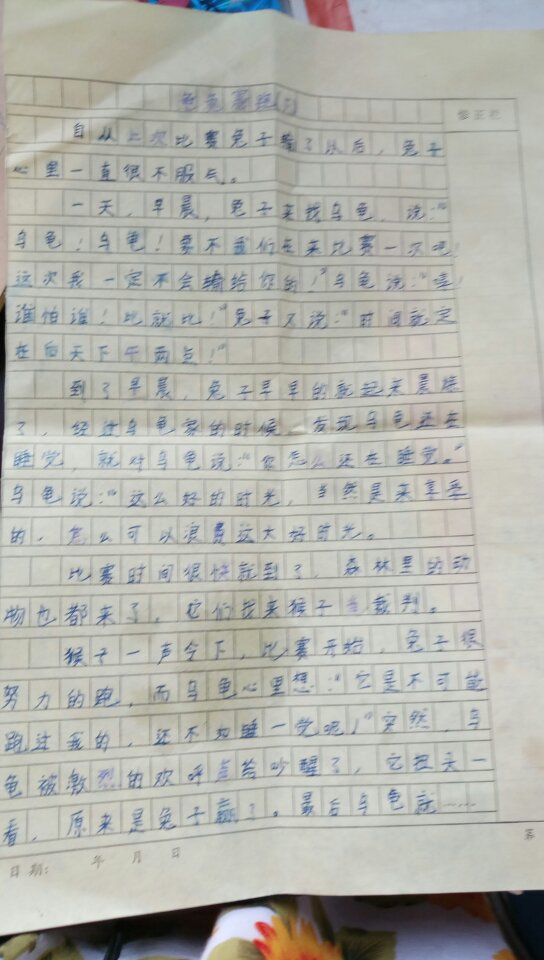 龟兔赛跑(
修正栏
自从上次比赛兔子输了以后，兔子
心里一直很不服气。
一天，早晨，兔子来找乌龟，说：“
乌龟！乌龟！要不我们在来比赛一次吧！
这次我一定不会输给你的！”乌龟说：“
谁怕谁！比就比！”兔子又说：“时间就定
在白天下午两点！”
到了早晨，兔子早早的就起来晨练
了，经过乌龟家的时候，发现乌龟还在
睡觉，就对乌龟说：“你怎么还在睡觉。”
乌龟说：“这么好的时光，当然是来享受
的，怎么可以浪费这大好时光。
比赛时间很快就到了，森林里的动
物也都来了，它们找来猴子当裁判。
猴子一声令下，比赛开始，兔子很
努力的跑，而乌龟心里想：“它是不可能
跑过我的，还不如睡一觉呢！”突然，乌
龟被激烈的欢呼声给吵醒了，它扭头一
看，原来是兔子赢了。最后乌龟就……
日期： 年 月 日